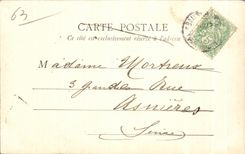 63
CARTE POSTALE
Ce côté est exclusivement réservé à l'adresse
Madame Mortreux
3 Grande Rue
Asnières
Seine